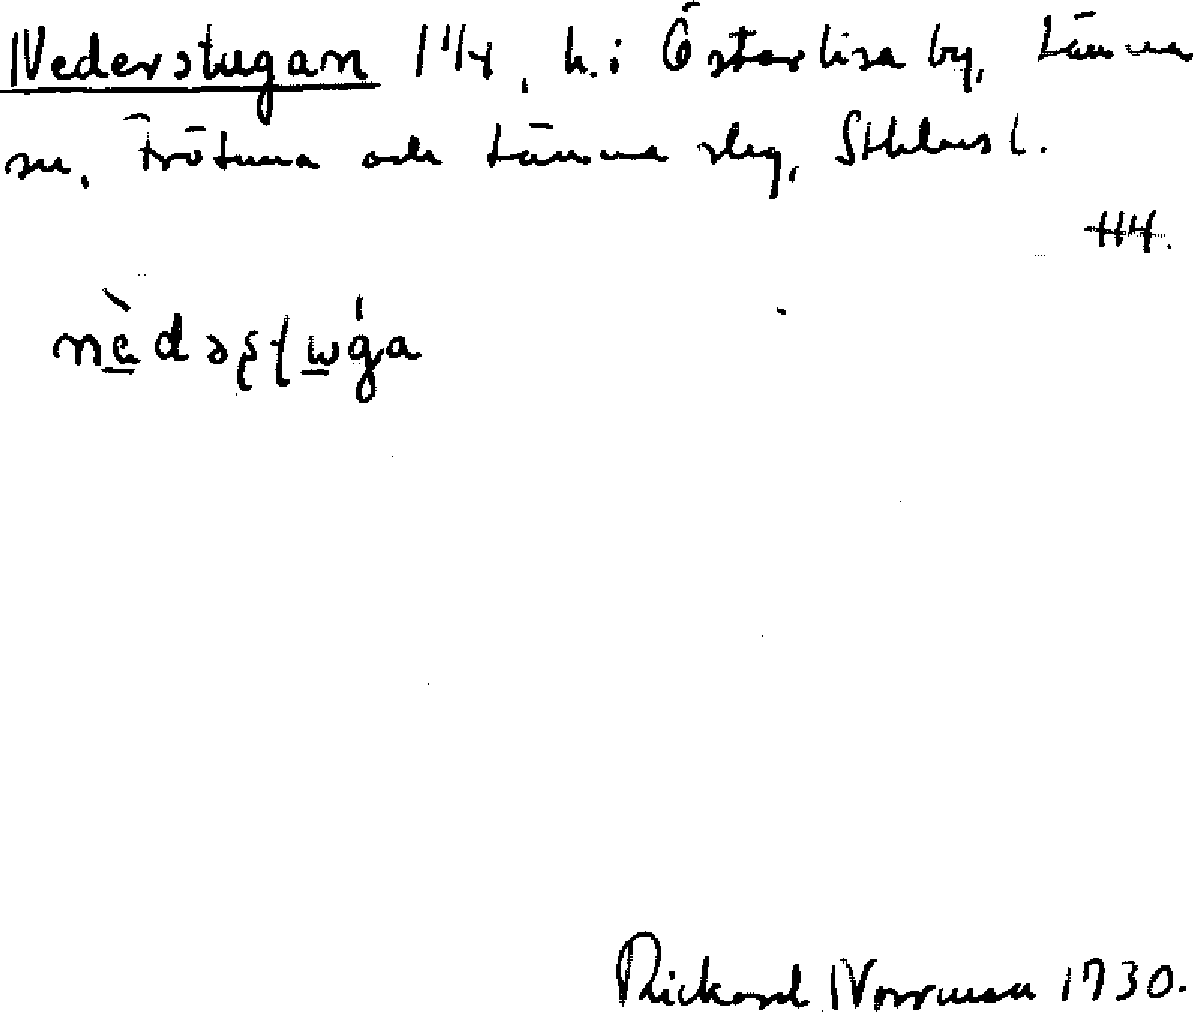 Nederstugan 1 1/4, h. i Österlisa by, Länna
sn, Frötuna och Länna slg, Sthlms l.
H4.
nèdəʂʈɯ̱ga
Rickard Norrman 1930.